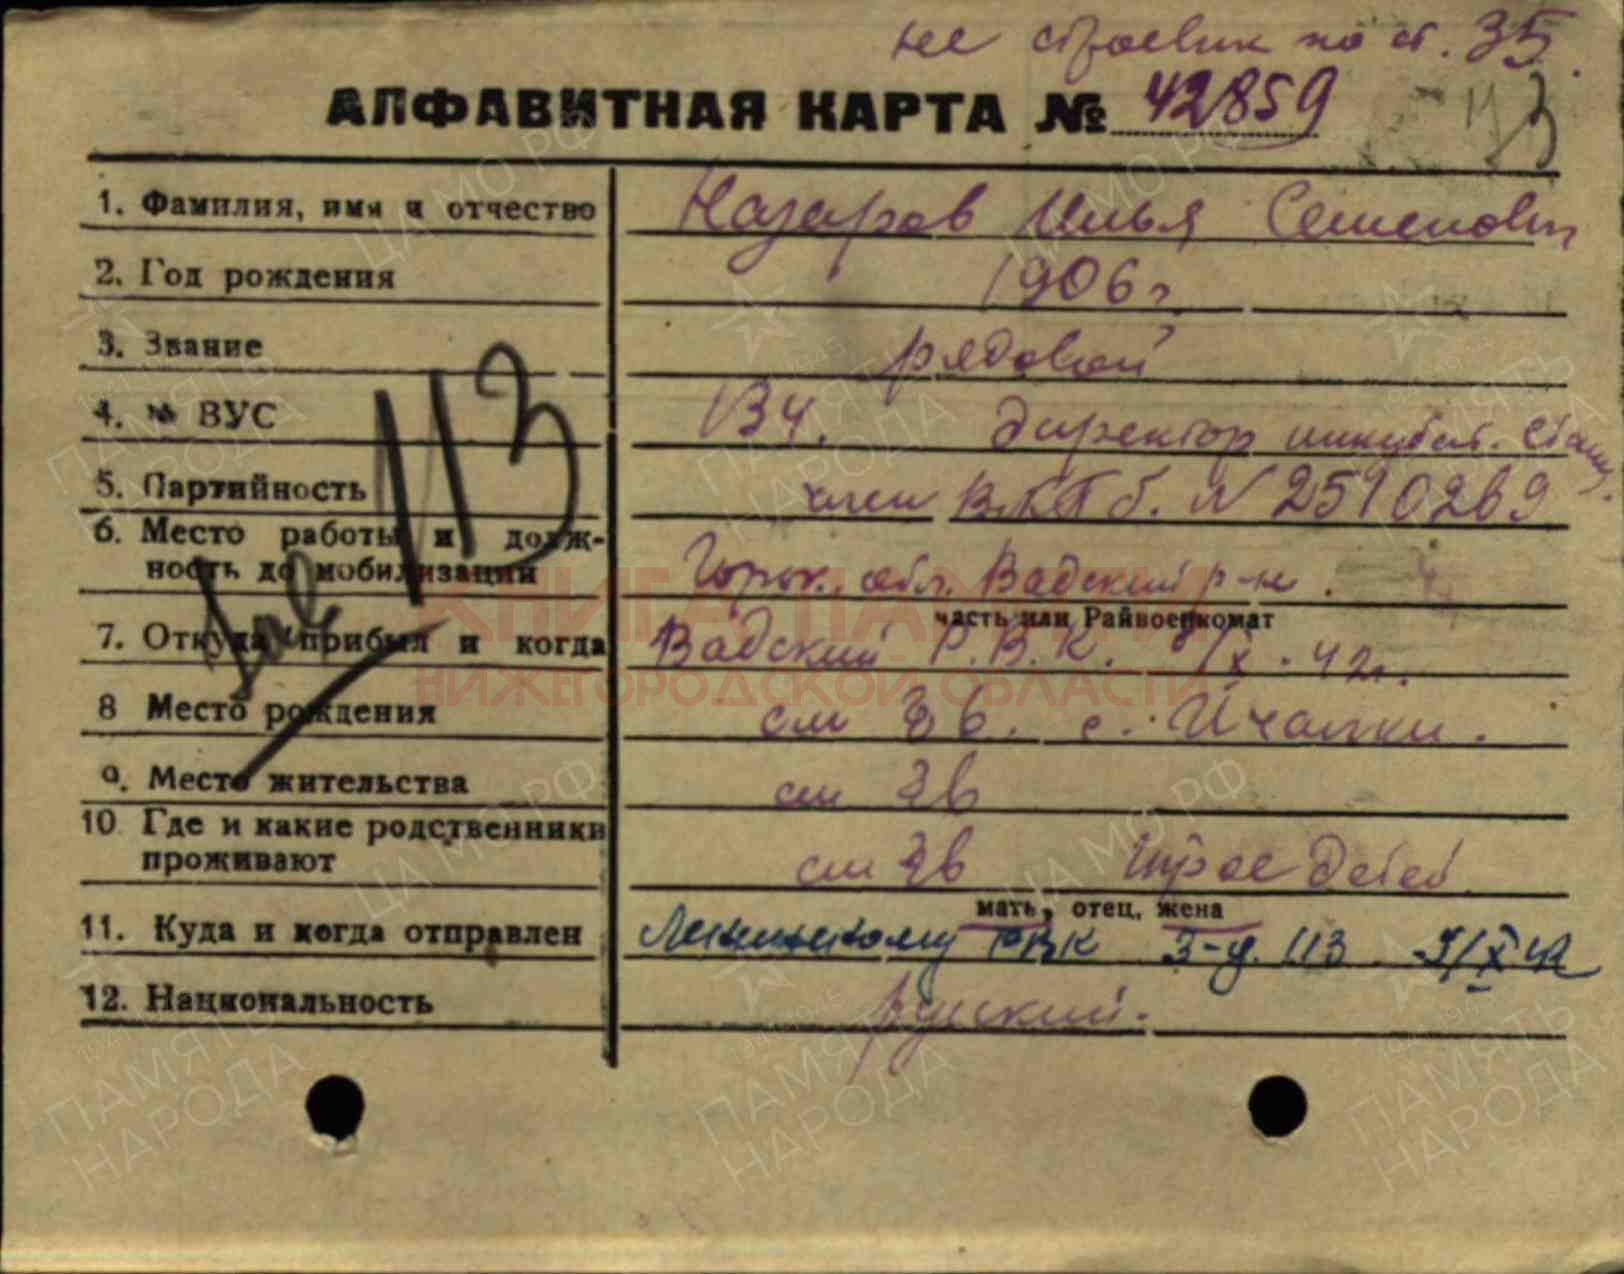 не строевик по ст. 35.
АЛФАВИТНАЯ КАРТА № 42859
113
1. Фамилия, имя и отчество Назаров Илья Семенович
2. Год рождения 1906 г.
3. Звание рядовой
4. № ВУС 134. Директор инкубат. станц.
5. Партийность член ВКПб. N 2590269
6. Место работы и долж-
ность до мобилизации Горьк. обл. Вадский р-н.
часть или Райвоенкомат
7. Откуда прибыл и когда Вадский Р.В.К. 42 г.
8 Место рождения см 3б. с. Ичалки.
9. Место жительства см 3б
10 Где и какие родственники
проживают см 3б трое детей
мать, отец, жена
11. Куда и когда отправлен Ленинскому РВК З-д. 113 9/X 42
12. Национальность русский.
КНИГА ПАМЯТИ
НИЖЕГОРОДСКОЙ ОБЛАСТИ
ЦА МО РФ
ПАМЯТЬ
НАРОДА